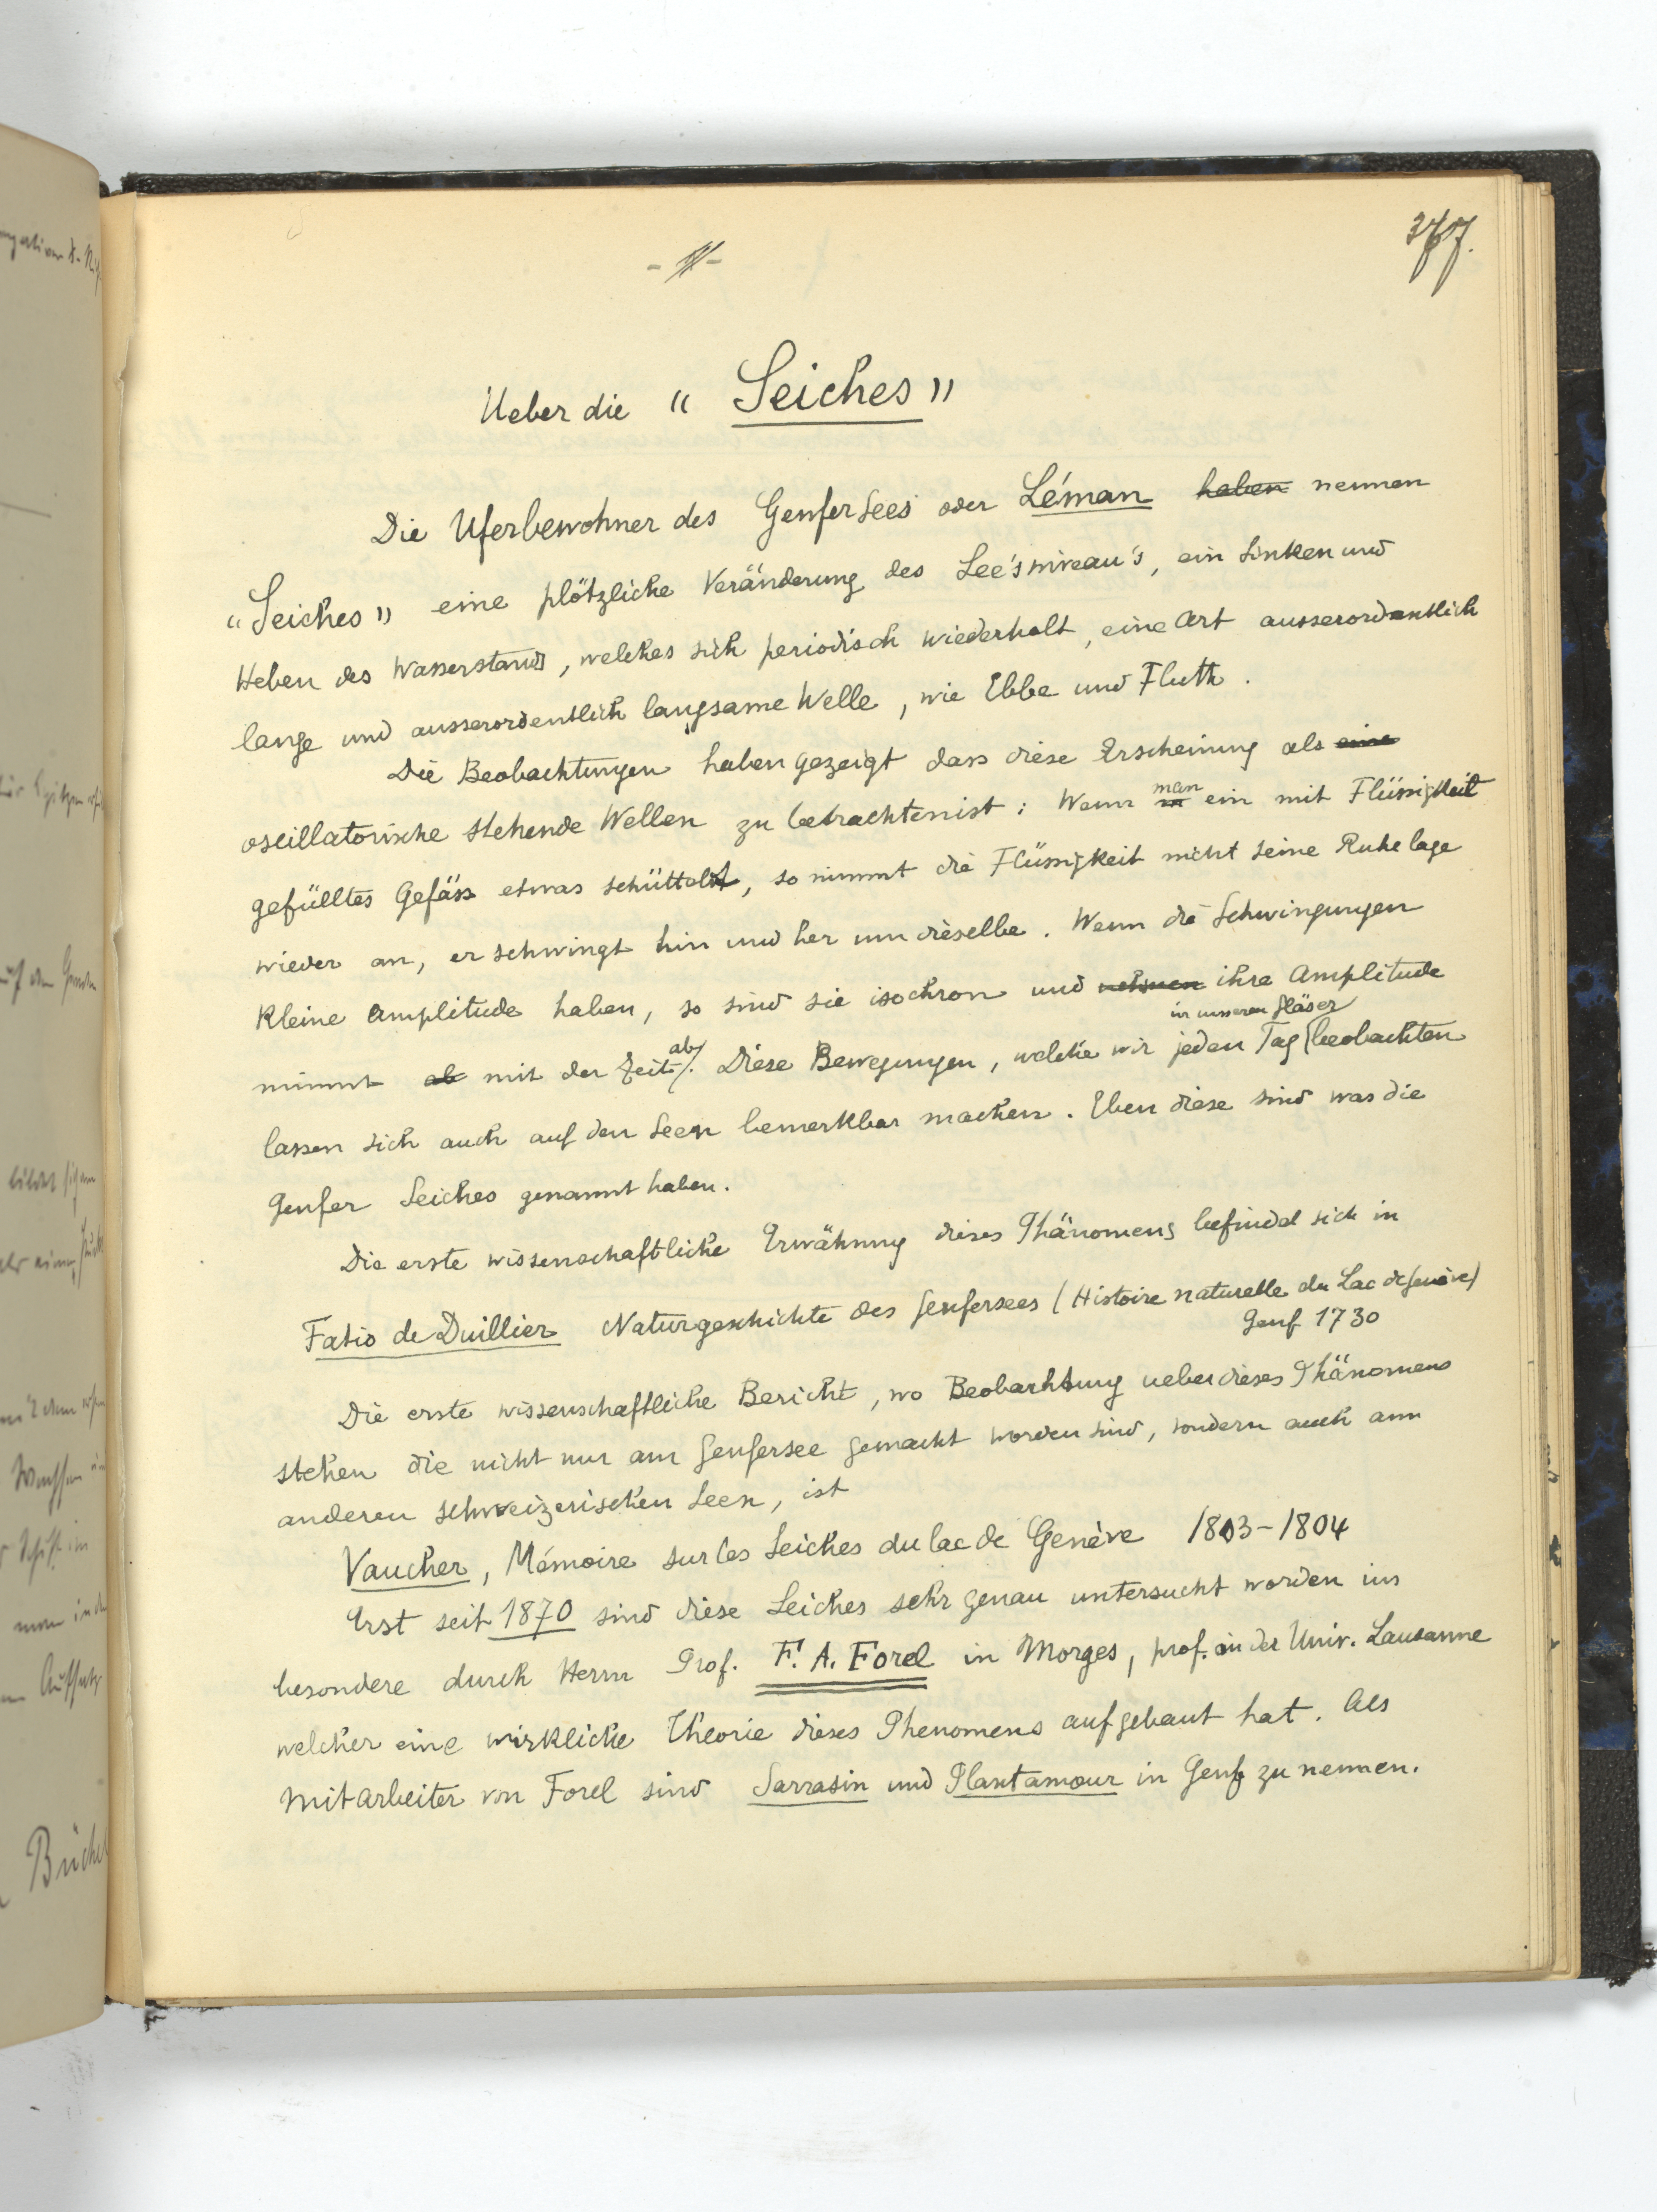 377.
Ueber die "Seiches"
Die Uferbewohner des Genfersees oder Léman haben nennen
"Seiches" eine plötzliche Veränderung des See's niveau's, ein Sinken und
Heben des Wasserstands, welches sich periodisch wiederholt, eine Art ausserordentlich
lange und ausserordentlich langsame Welle, wie Ebbe und Fluth.
Die Beobachtungen haben gezeigt dass diese Erscheinung als eine
oscillatorische stehende Wellen zu betrachten ist: Wenn man ein mit Flüssigkeit
gefülltes Gefäss etwas schüttelt, so nimmt die Flüssigkeit nicht seine Ruhelage
wieder an, er schwingt hin und her um dieselbe. Wenn die Schwingungen
kleine Amplitude haben, so sind sie isochron und nehmen ihre Amplitude
nimmt ab mit der Zeit ab. Diese Bewegungen, welche wir jeden Tag in unseren Gläser beobachten
lassen sich auch auf den Seen bemerkbar machen. Eben diese sind was die
Genfer Seiches genannt haben.
Die erste wissenschaftliche Erwähnung dieses Phänomens befindet sich in
Fatio de Duillier Naturgeschichte des Genfersees (Histoire naturelle du Lac de Genève)
Genf 1730
Die erste wissenschaftliche Bericht, wo Beobachtung ueber dieses Phänomens
stehen die nicht nur am Genfersee gemacht worden sind, sondern auch am
anderen schweizerischen Seen, ist
Vaucher, Mémoire sur les Seiches du lac de Genève 1803-1804
Erst seit 1870 sind diese Seiches sehr genau untersucht worden ins
besondere durch Herrn Prof. F. A. Forel in Morges, prof. an der Univ. Lausanne
welcher eine wirkliche Theorie dieses Phenomens aufgebaut hat. Als
Mitarbeiter von Forel sind Sarrasin und Plantamour in Genf zu nennen.